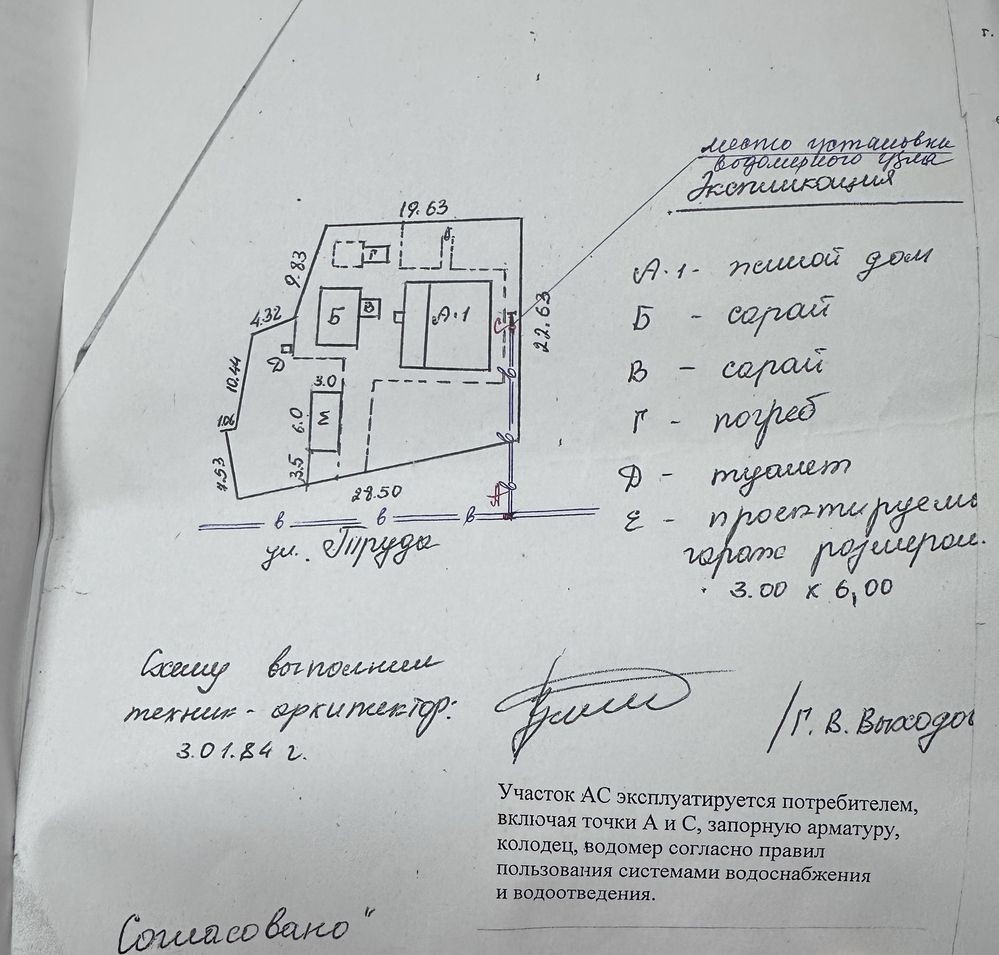 г.
место установки
водомерного узла
Экспликация
19.63
9.83
Г
4.32
Б
В
А·1
С
22.63
А·1 - жилой дом
Б - сарай
В - сарай
Г - погреб
Д - туалет
Е - проектируемы
гараж размером.
3.00 х 6,00
Д
10.44
3.0
6.0
Е
1.06
3.5
7.53
28.50
А
в
в
в
в
в
в
ул. Труда
Схему выполнил
техник-архитектор:
3.01.84 г.
/Г. В. Выходов
Участок АС эксплуатируется потребителем,
включая точки А и С, запорную арматуру,
колодец, водомер согласно правил
пользования системами водоснабжения
и водоотведения.
Согласовано"